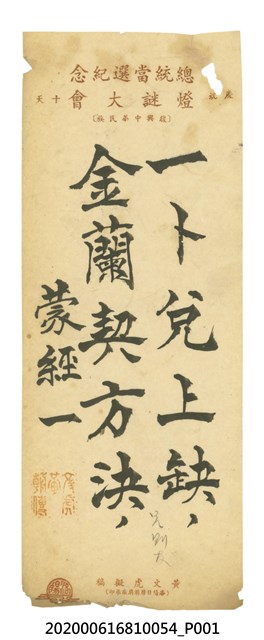 總統當選紀念
燈謎大會
十天
〔復興中華民族〕
一卜兌上缺，
金蘭契方決，
蒙經一
兄則友
黃文虎擬稿
202000616810054_P001